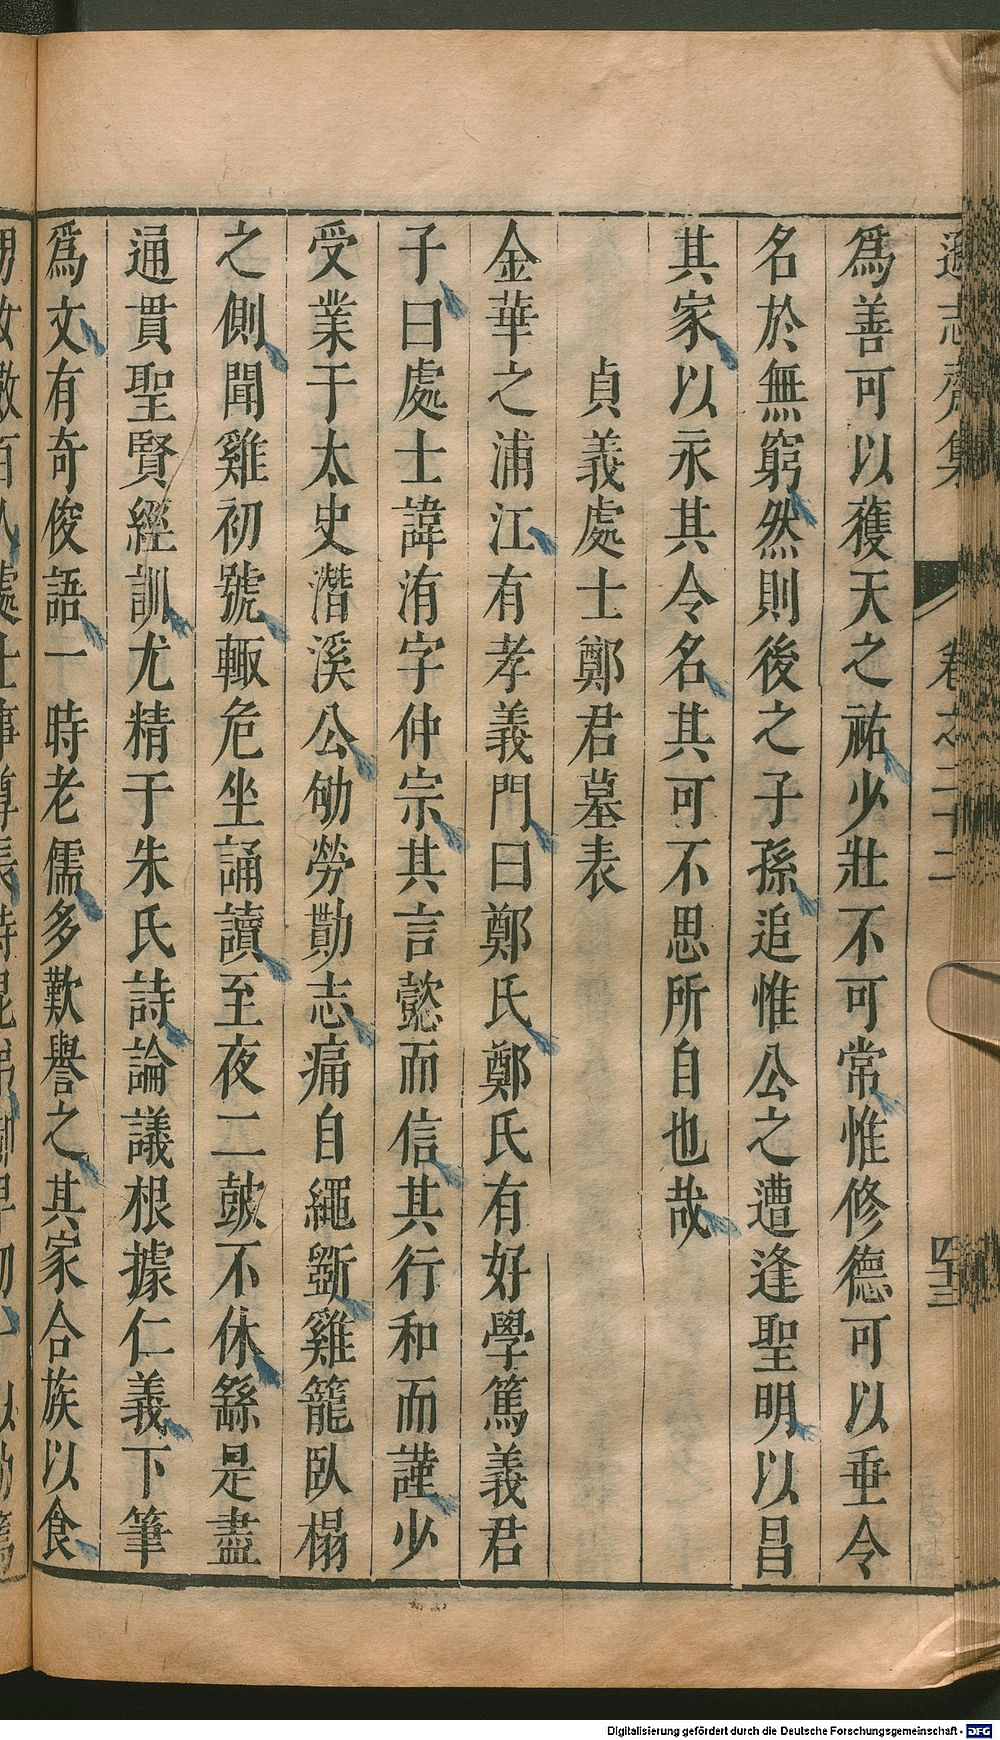 遜志齋集 卷之二十二 四十三
爲善可以獲天之祐少壯不可常惟修德可以垂令
名於無窮然則後之子孫追惟公之遭逢聖明以昌
其家以永其令名其可不思所自也哉
貞義處士鄭君墓表
金華之浦江有孝義門曰鄭氏鄭氏有好學篤義君
子曰處士諱洧字仲宗其言懿而信其行和而謹少
受業于太史潛溪公劬勞勩志痛自繩斵雞籠臥榻
之側聞雞初號輙危坐誦讀至夜二皷不休繇是盡
通貫聖賢經訓尤精于朱氏詩論議根據仁義下筆
爲文有奇俊語一時老儒多歎譽之其家合族以食
Digitalisierung gefördert durch die Deutsche Forschungsgemeinschaft - DFG